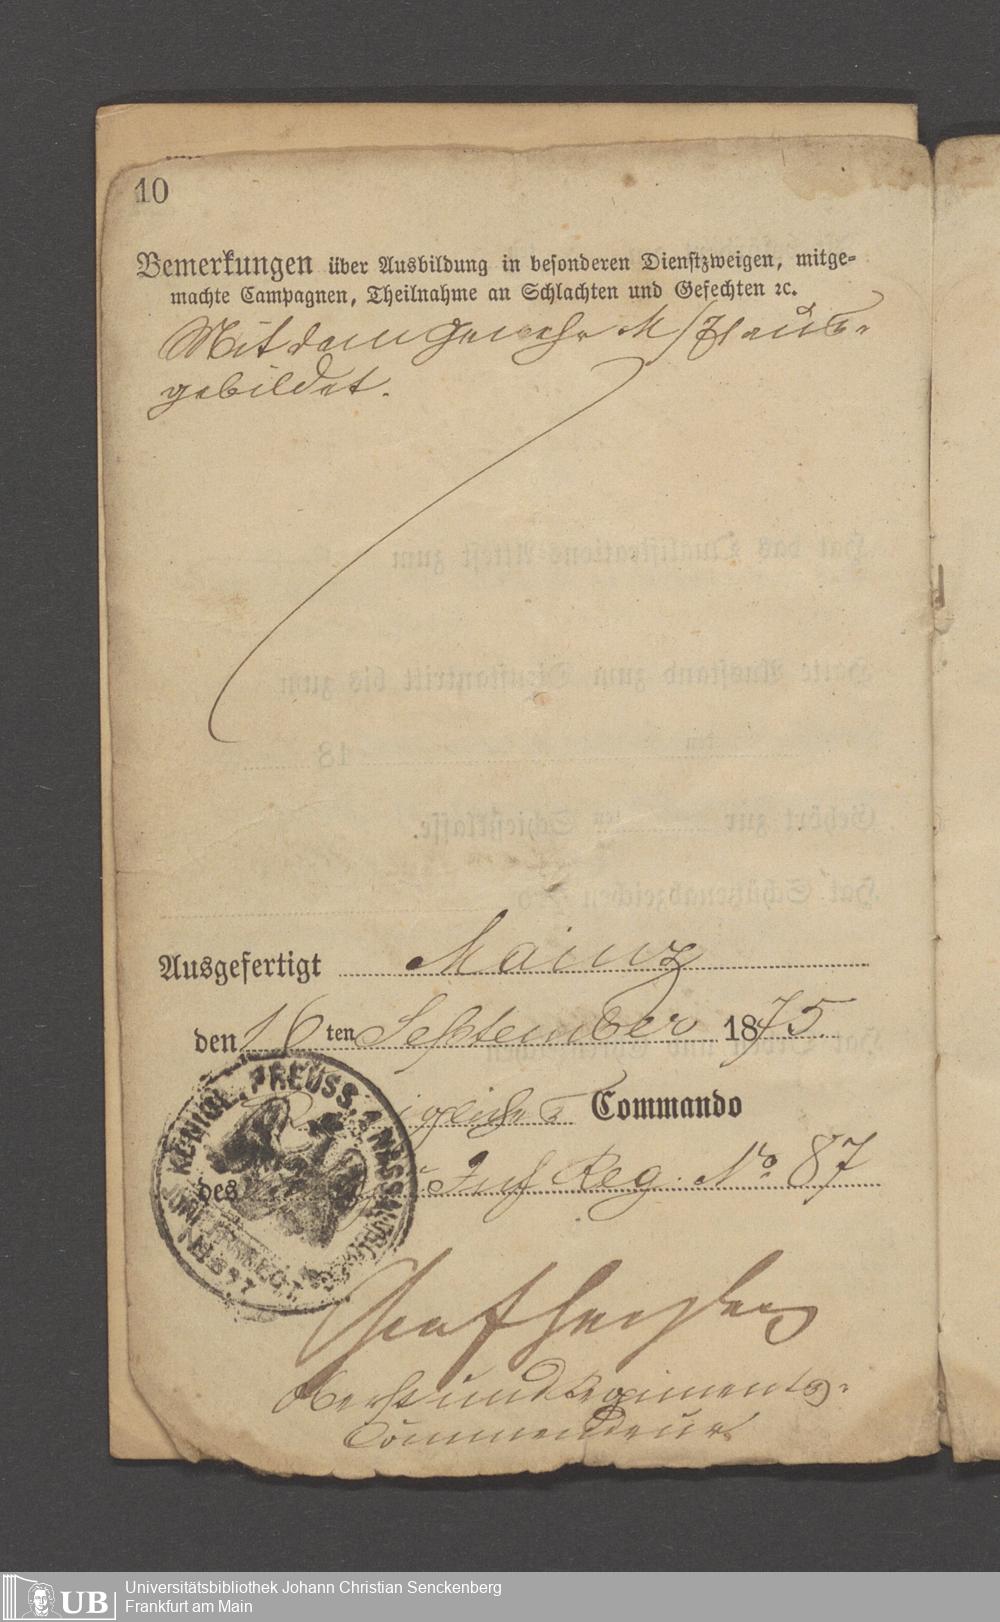 10
Bemerkungen über Ausbildung in besonderen Dienstzweigen, mitge-
machte Campagnen, Theilnahme an Schlachten und Gefechten ꝛc.
Mit dem Gewehr M/71 aus-
gebildet.
Ausgefertigt Mainz
den 16 ten September 1875.
Königliches Commando
des Inf Reg. No 87
KÖNIGL. PREUSS. NASS.
Oberst und Regiments-
Commandeur
UB Universitätsbibliothek Johann Christian Senckenberg
Frankfurt am Main